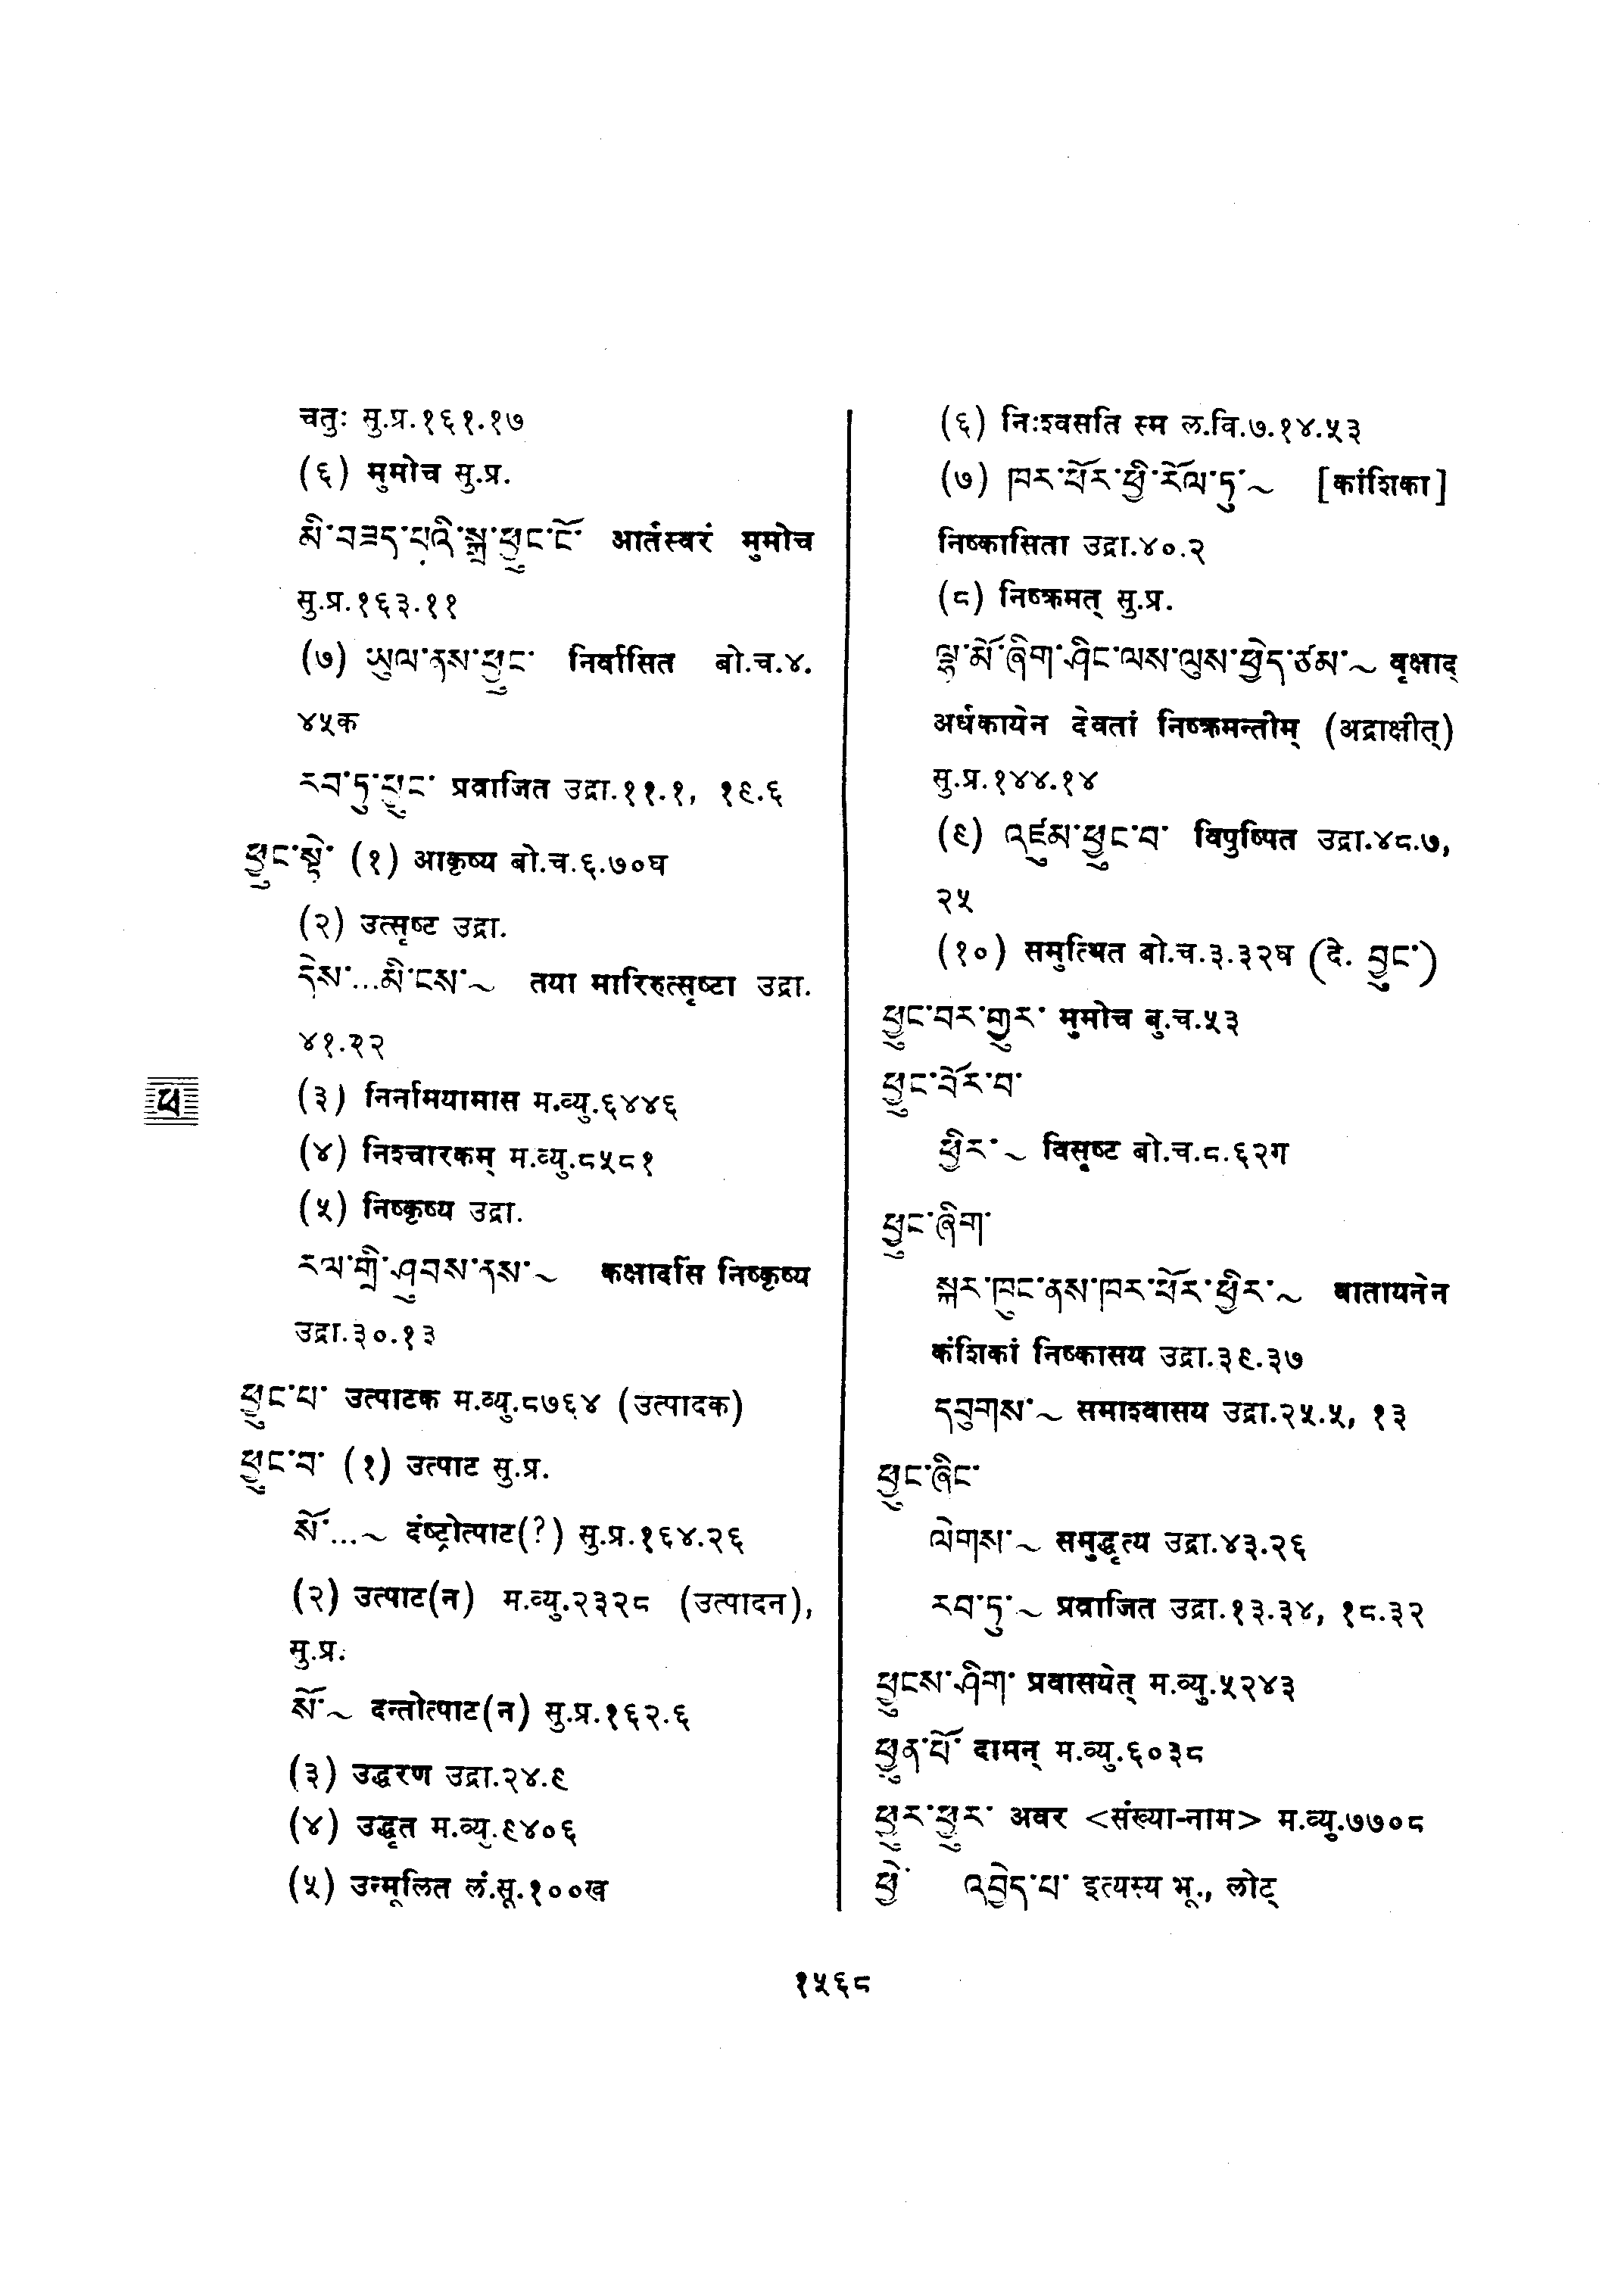 चतुः सु.प्र.१६१.१७
(६) मुमोच सु.प्र.
མི་བཟད་པའི་སྒྲ་ཕྱུང་ངོ་ आर्तस्वरं मुमोच
सु.प्र.१६३.११
(७) ཡུལ་ནས་ཕྱུང་ निर्वासित बो.च.४.
४५क
རབ་ཏུ་ཕྱུང་ प्रव्राजित उद्रा.११.१, १९.६
ཕྱུང་སྟེ་ (१) आकृष्य बो.च.६.७०घ
(२) उत्सृष्ट उद्रा.
དེས་...མི་ངས་~ तया मारिरुत्सृष्टा उद्रा.
४१.२२
(३) निर्नामयामास म.व्यु.६४४६
(४) निश्चारकम् म.व्यु.८५८१
(५) निष्कृष्य उद्रा.
རལ་གྲི་ཤུབས་ནས་~ कक्षादसिं निष्कृष्य
उद्रा.३०.१३
ཕྱུང་པ་ उत्पाटक म.व्यु.८७६४ (उत्पादक)
ཕྱུང་བ་ (१) उत्पाट सु.प्र.
སོ་...~ दंष्ट्रोत्पाट(?) सु.प्र.१६४.२६
(२) उत्पाट(न) म.व्यु.२३२८ (उत्पादन),
सु.प्र.
སོ་~ दन्तोत्पाट(न) सु.प्र.१६२.६
(३) उद्धरण उद्रा.२४.९
(४) उद्धृत म.व्यु.९४०६
(५) उन्मूलित लं.सू.१००ख
(६) निःश्वसति स्म ल.वि.७.१४.५३
(७) ཁར་ཕོར་ཕྱི་རོལ་ཏུ་~ [कांशिका]
निष्कासिता उद्रा.४०.२
(८) निष्क्रमत् सु.प्र.
ལྷ་མོ་ཞིག་ཤིང་ལས་ལུས་ཕྱེད་ཙམ་~ वृक्षाद्
अर्धकायेन देवतां निष्क्रमन्तीम् (अद्राक्षीत्)
सु.प्र.१४४.१४
(९) འཛུམ་ཕྱུང་བ་ विपुष्पित उद्रा.४८.७,
२५
(१०) समुत्थित बो.च.३.३२घ (दे. བྱུང་)
ཕྱུང་བར་གྱུར་ मुमोच बु.च.५३
ཕྱུང་བོར་བ་
ཕྱིར་~ विसृष्ट बो.च.८.६२ग
ཕྱུང་ཞིག་
སྐར་ཁུང་ནས་ཁར་ཕོར་ཕྱིར་~ वातायनेन
कंशिकां निष्कासय उद्रा.३९.३७
དབུགས་~ समाश्वासय उद्रा.२५.५, १३
ཕྱུང་ཞིང་
ལེགས་~ समुद्धृत्य उद्रा.४३.२६
རབ་ཏུ་~ प्रव्राजित उद्रा.१३.३४, १८.३२
ཕྱུངས་ཤིག་ प्रवासयेत् म.व्यु.५२४३
ཕྱུན་པོ་ दामन् म.व्यु.६०३८
ཕྱུར་ཕྱུར་ अवर <संख्या-नाम> म.व्यु.७७०८
ཕྱེ་ འབྱེད་པ་ इत्यस्य भू., लोट्
ཕ
१५६८